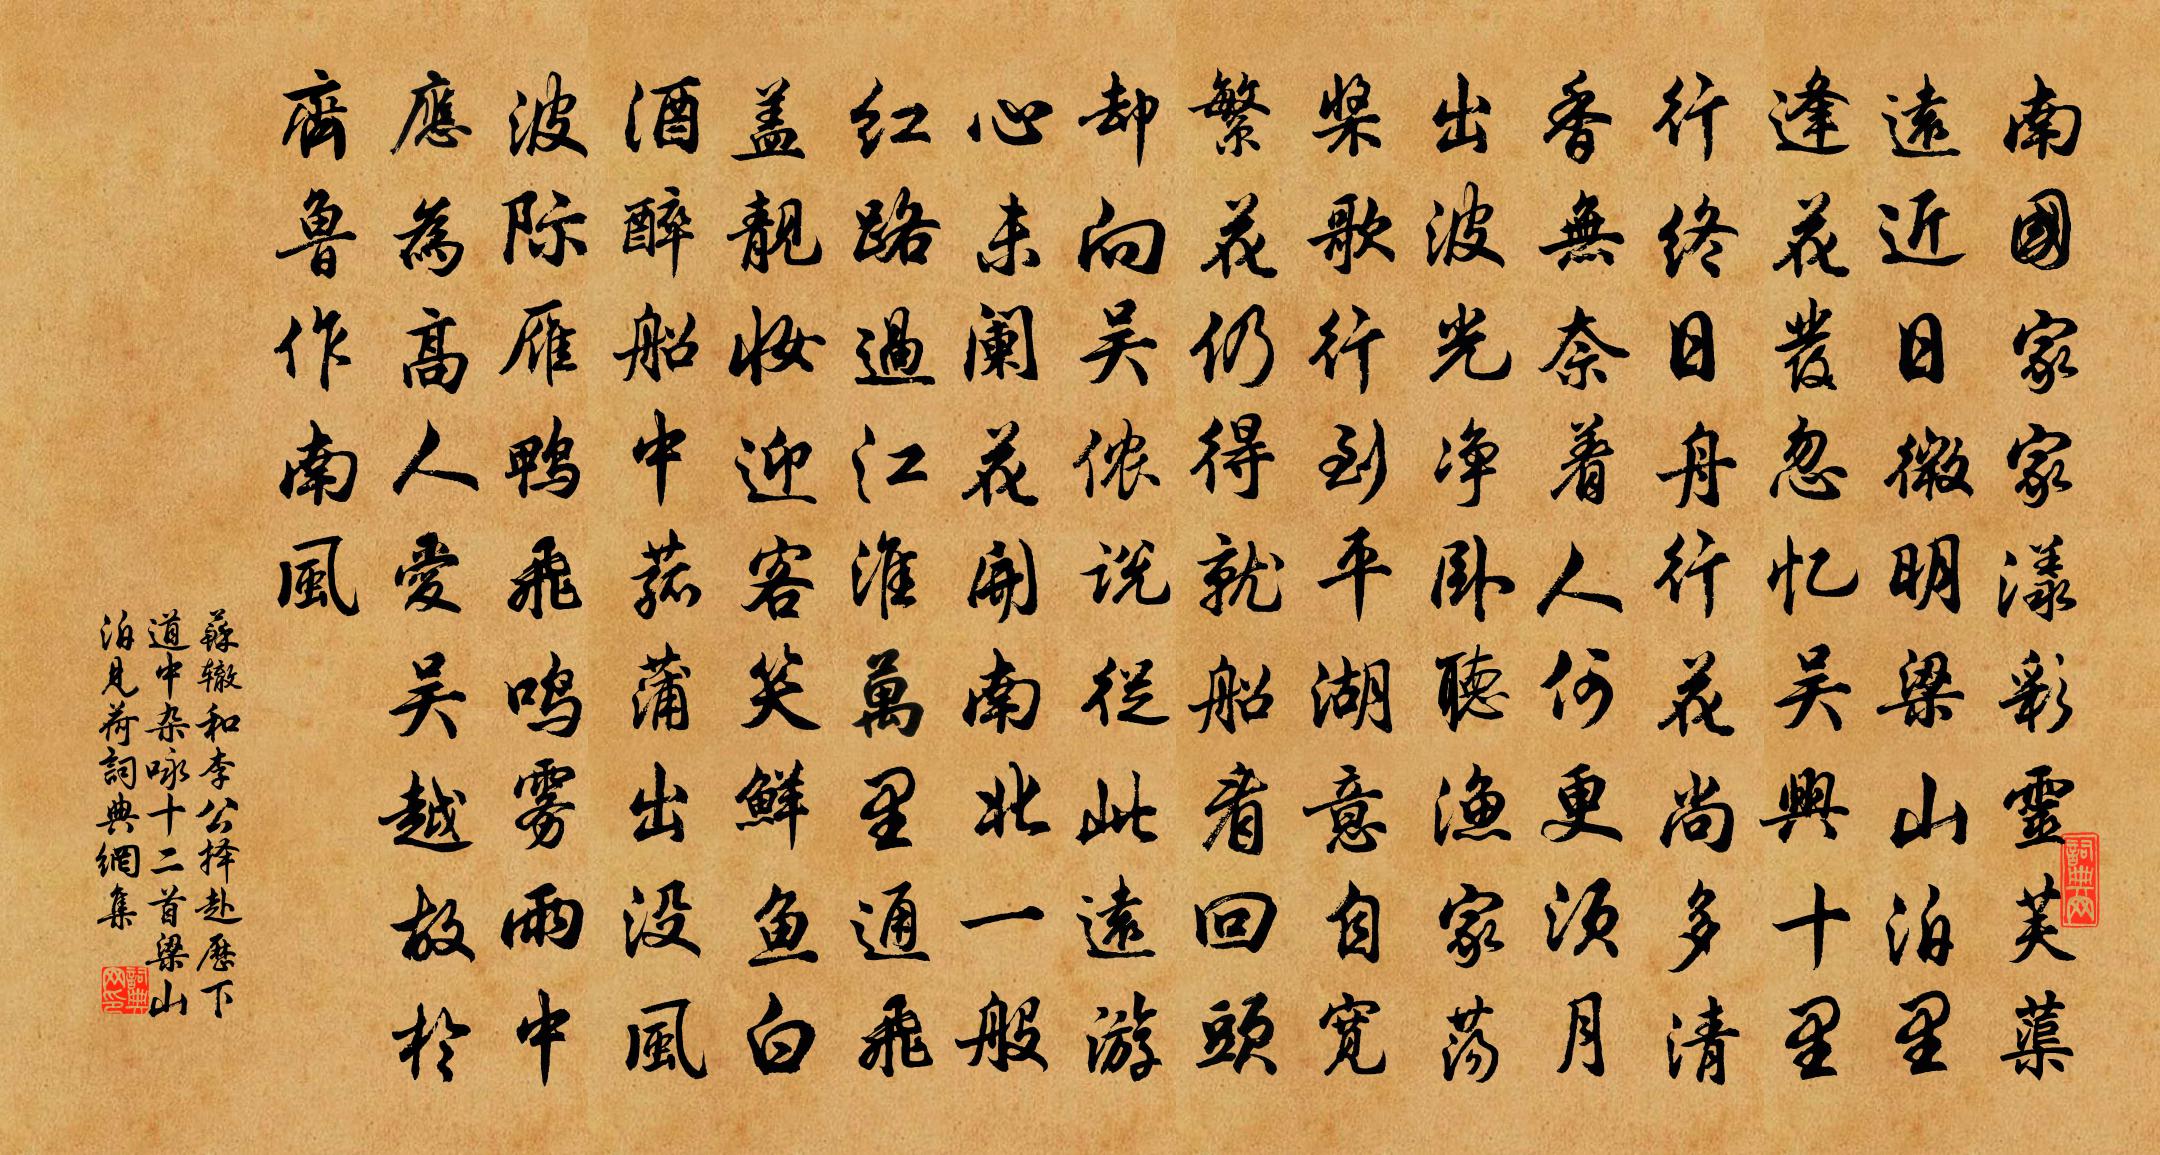 南國家家漾彩靈芙蕖
遠近日微明梁山泊里
逢花發忽忆吴興十里
行终日舟行花尚多清
香無奈着人何更须月
出波光净卧聽渔家荡
桨歌行到平湖意自宽
繁花仍得就船看回頭
却向吴侬说從此遠游
心未阑花開南北一般
红路過江淮萬里通飛
盖靚妆迎客笑鮮鱼白
酒醉船中菰蒲出没風
波际雁鸭飛鸣雾雨中
應為高人愛吴越故於
齊魯作南風
蘇辙和李公择赴歷下
道中杂咏十二首梁山
泊見荷詞典網集
詞典网
詞典网印